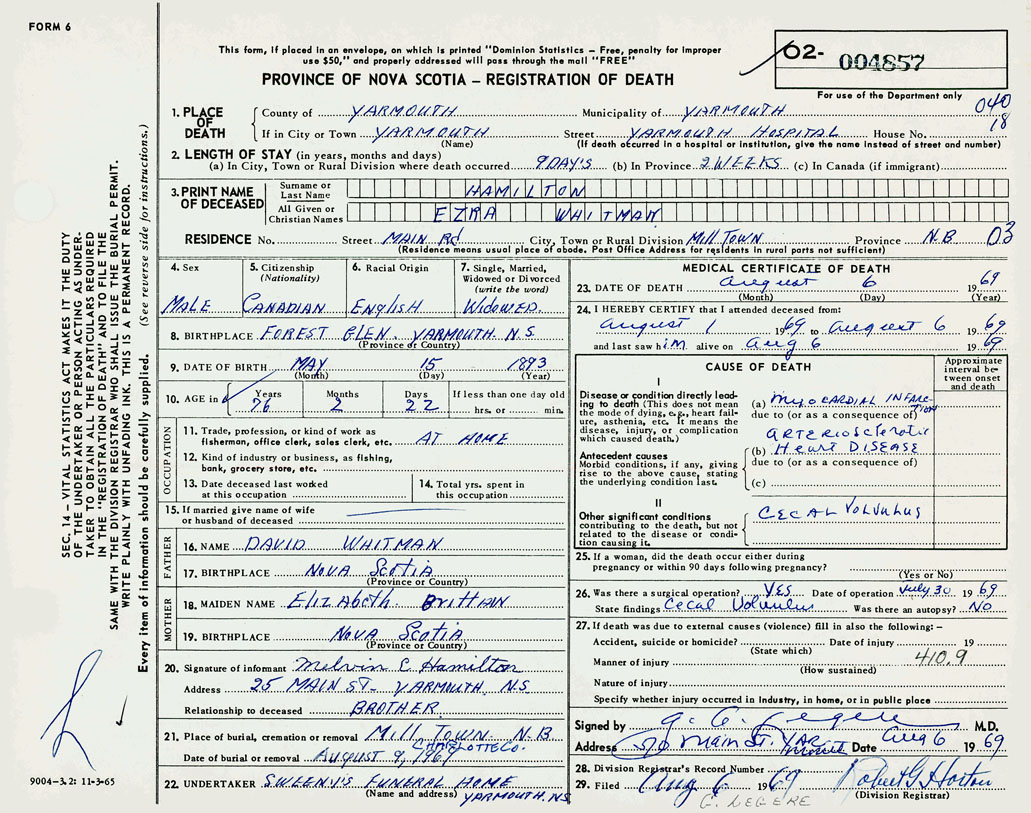 FORM 6
This form, if placed in an envelope, on which is printed "Dominion Statistics – Free, penalty for improper
use $50," and properly addressed will pass through the mail "FREE"
PROVINCE OF NOVA SCOTIA – REGISTRATION OF DEATH
02- 004857
For use of the Department only
040
18
SEC. 14 – VITAL STATISTICS ACT MAKES IT THE DUTY
OF THE UNDERTAKER OR PERSON ACTING AS UNDER-
TAKER TO OBTAIN ALL THE PARTICULARS REQUIRED
IN THE "REGISTRATION OF DEATH" AND TO FILE THE
SAME WITH THE DIVISION REGISTRAR WHO SHALL ISSUE THE BURIAL PERMIT.
WRITE PLAINLY WITH UNFADING INK. THIS IS A PERMANENT RECORD.
Every item of information should be carefully supplied. (See reverse side for instructions.)
1. PLACE OF DEATH
County of YARMOUTH Municipality of YARMOUTH
If in City or Town YARMOUTH Street YARMOUTH HOSPITAL House No.
(Name) (If death occurred in a hospital or institution, give the name instead of street and number)
2. LENGTH OF STAY (in years, months and days)
(a) In City, Town or Rural Division where death occurred 9 DAY'S (b) In Province 2 WEEKS (c) In Canada (if immigrant)
3. PRINT NAME OF DECEASED
Surname or Last Name HAMILTON
All Given or Christian Names EZRA WHITMAN
RESIDENCE No. Street MAIN Rd City, Town or Rural Division Mill TOWN Province N.B 03
(Residence means usual place of abode. Post Office Address for residents in rural parts not sufficient)
4. Sex
MALE
5. Citizenship (Nationality)
CANADIAN
6. Racial Origin
English
7. Single, Married, Widowed or Divorced (write the word)
WIDOWED.
8. BIRTHPLACE FOREST GLEN. YARMOUTH. N.S.
(Province or Country)
9. DATE OF BIRTH MAY 15 1893
(Month) (Day) (Year)
10. AGE in Years 76 Months 2 Days 22 If less than one day old hrs. or min.
OCCUPATION
11. Trade, profession, or kind of work as
fisherman, office clerk, sales clerk, etc. AT HOME
12. Kind of industry or business, as fishing,
bank, grocery store, etc.
13. Date deceased last worked
at this occupation
14. Total yrs. spent in
this occupation
15. If married give name of wife
or husband of deceased
FATHER
16. NAME DAVID WHITMAN
17. BIRTHPLACE NOVA SCOTIA
(Province or Country)
MOTHER
18. MAIDEN NAME ElizABeth BrittAIN
19. BIRTHPLACE NOVA SCOTIA
(Province or Country)
20. Signature of informant Melvin C Hamilton
Address 25 MAIN ST- YARMOUTH. N.S
Relationship to deceased BROTHER
21. Place of burial, cremation or removal Mill TOWN. N.B
CHARLOTTE Co.
Date of burial or removal AUGUST 9, 1969
22. UNDERTAKER SWEENY'S FUNERAL HOME
(Name and address) YARMOUTH. N.S.
9004-3.2: 11-3-65
MEDICAL CERTIFICATE OF DEATH
23. DATE OF DEATH August 6 1969
(Month) (Day) (Year)
24. I HEREBY CERTIFY that I attended deceased from:
August 1 1969 to August 6 1969
and last saw him alive on Aug 6 1969
CAUSE OF DEATH
Approximate interval between onset and death
I
Disease or condition directly leading to death (This does not mean
the mode of dying, e.g., heart failure, asthenia, etc. It means the
disease, injury, or complication which caused death.)
(a) MYOCARDIAL INFARCTION
due to (or as a consequence of)
Antecedent causes
Morbid conditions, if any, giving rise to the above cause, stating
the underlying condition last.
ARTERIOSCLEROTIC
(b) HEART DISEASE
due to (or as a consequence of)
(c)
II
Other significant conditions
contributing to the death, but not related to the disease or condition causing it.
CECAL VOLVULUS
25. If a woman, did the death occur either during
pregnancy or within 90 days following pregnancy?
(Yes or No)
26. Was there a surgical operation? YES Date of operation July 30 1969
State findings Cecal Volvulus Was there an autopsy? NO
27. If death was due to external causes (violence) fill in also the following: –
Accident, suicide or homicide? Date of injury 19
(State which)
Manner of injury 410.9
(How sustained)
Nature of injury
Specify whether injury occurred in industry, in home, or in public place
Signed by M.D.
Address Main St. Date Aug 6 1969
28. Division Registrar's Record Number
29. Filed Aug 6 1969 Robert G Horton
(Division Registrar)
G. LEGERE